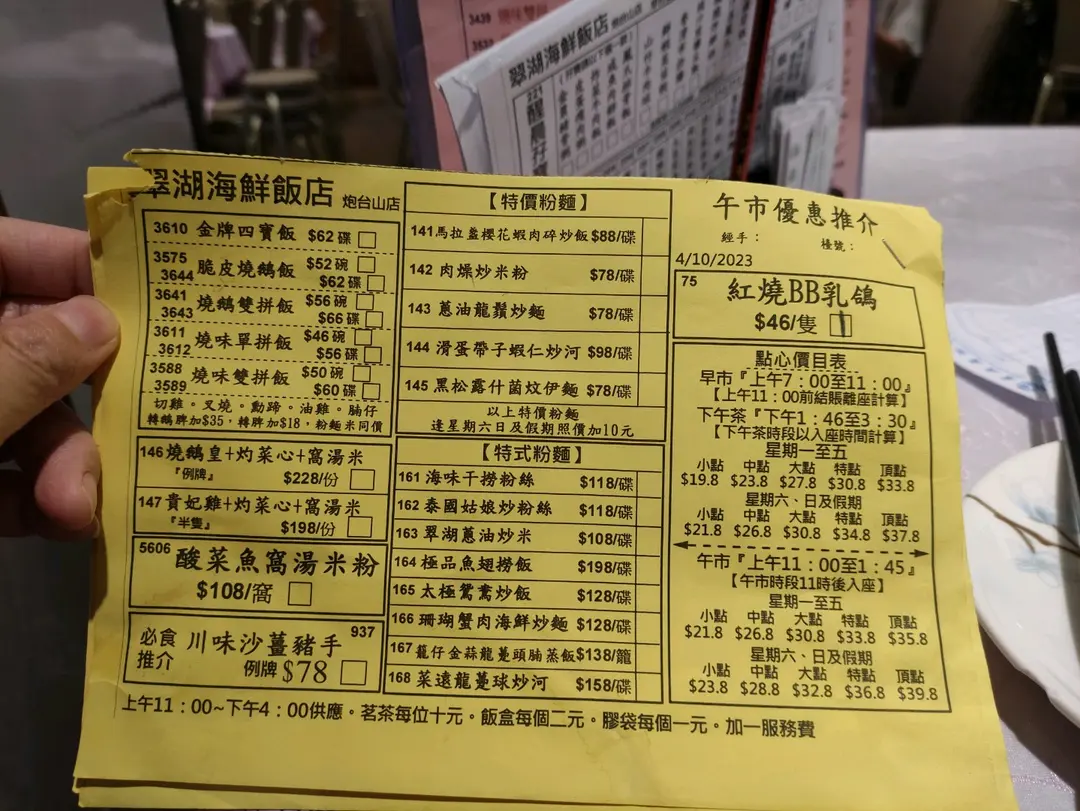 翠湖海鮮飯店 炮台山店
3610 金牌四寶飯 $62 碟
3575 脆皮燒鵝飯 $52 碗
3644 $62 碟
3641 燒鵝雙拼飯 $56 碗
3643 $66 碟
3611 燒味單拼飯 $46 碗
3612 $56 碟
3588 燒味雙拼飯 $50 碗
3589 $60 碟
切雞。叉燒。勳蹄。油雞。腩仔
轉鵝髀加$35,轉髀加$18,粉麵米同價
146 燒鵝皇+灼菜心+窩湯米
『例牌』 $228/份
147 貴妃雞+灼菜心+窩湯米
『半隻』 $198/份
5606 酸菜魚窩湯米粉
$108/窩
必食推介 川味沙薑豬手 937
例牌 $78
【特價粉麵】
141 馬拉盞櫻花蝦肉碎炒飯 $88/碟
142 肉燥炒米粉 $78/碟
143 蔥油龍鬚炒麵 $78/碟
144 滑蛋帶子蝦仁炒河 $98/碟
145 黑松露什菌炆伊麵 $78/碟
以上特價粉麵
逢星期六日及假期照價加10元
【特式粉麵】
161 海味干撈粉絲 $118/碟
162 泰國姑娘炒粉絲 $118/碟
163 翠湖蔥油炒米 $108/碟
164 極品魚翅撈飯 $198/碟
165 太極鴛鴦炒飯 $128/碟
166 珊瑚蟹肉海鮮炒麵 $128/碟
167 籠仔金蒜龍躉頭腩蒸飯 $138/籠
168 菜遠龍躉球炒河 $158/碟
午市優惠推介
經手: 檯號:
4/10/2023
75 紅燒BB乳鴿
$46/隻
點心價目表
早市『上午7:00至11:00』
【上午11:00前結賬離座計算】
下午茶『下午1:46至3:30』
【下午茶時段以入座時間計算】
星期一至五
小點 中點 大點 特點 頂點
$19.8 $23.8 $27.8 $30.8 $33.8
星期六、日及假期
小點 中點 大點 特點 頂點
$21.8 $26.8 $30.8 $34.8 $37.8
午市『上午11:00至1:45』
【午市時段11時後入座】
星期一至五
小點 中點 大點 特點 頂點
$21.8 $26.8 $30.8 $33.8 $35.8
星期六、日及假期
小點 中點 大點 特點 頂點
$23.8 $28.8 $32.8 $36.8 $39.8
上午11:00~下午4:00供應。茗茶每位十元。飯盒每個二元。膠袋每個一元。加一服務費
3439
翠湖海鮮飯店